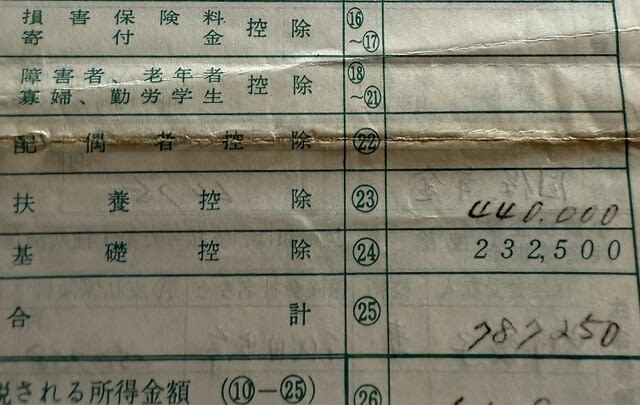 損害保険料
寄付金 控除 ⑯~⑰
障害者、老年者
寡婦、勤労学生 控除 ⑱~㉑
配偶者控除 ㉒
扶養控除 ㉓ 440.000
基礎控除 ㉔ 232,500
合計 ㉕ 787250
税される所得金額 (⑩-㉕) ㉖